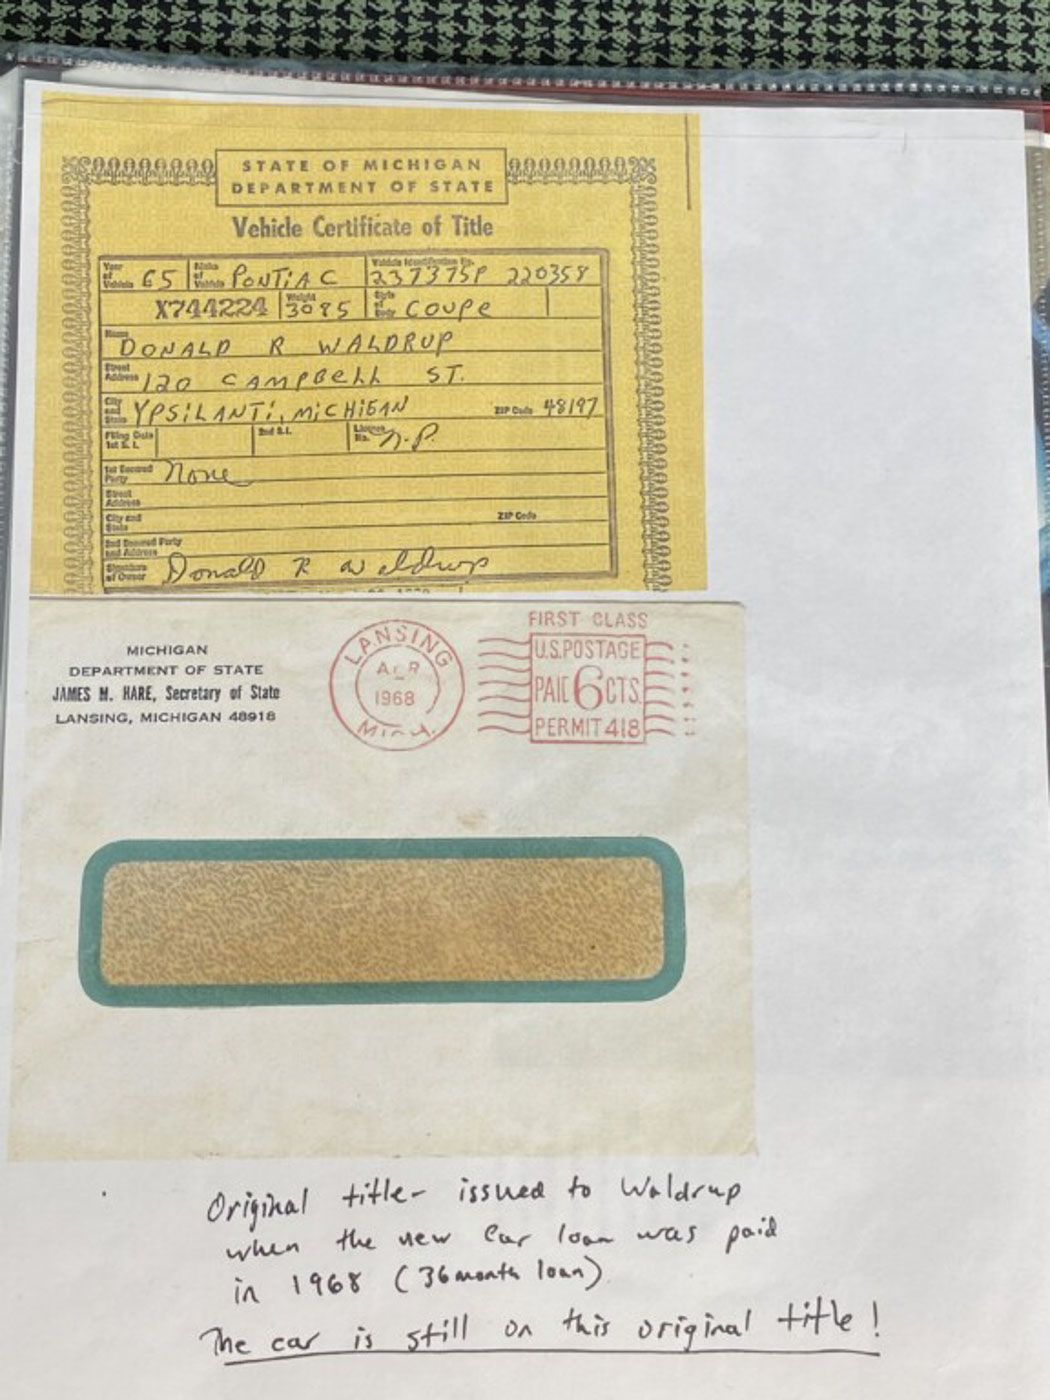 STATE OF MICHIGAN
DEPARTMENT OF STATE
Vehicle Certificate of Title
Year of Vehicle 65 Make of Vehicle PONTIAC Vehicle Identification No. 237375P 220358
X744224 Weight 3085 Style of Body COUPE
Name DONALD R WALDRUP
Street Address 120 CAMPBELL ST.
City and State YPSILANTI, MICHIGAN ZIP Code 48197
Filing Date 1st S.I. 2nd S.I. License No. N.P.
1st Secured Party None
Street Address
City and State ZIP Code
2nd Secured Party and Address
Signature of Owner Donald R Waldrup
MICHIGAN
DEPARTMENT OF STATE
JAMES M. HARE, Secretary of State
LANSING, MICHIGAN 48918
LANSING
APR
1968
MICH.
FIRST CLASS
U.S.POSTAGE
PAID 6 CTS.
PERMIT 418
Original title - issued to Waldrup
when the new car loan was paid
in 1968 (36 month loan)
The car is still on this original title!